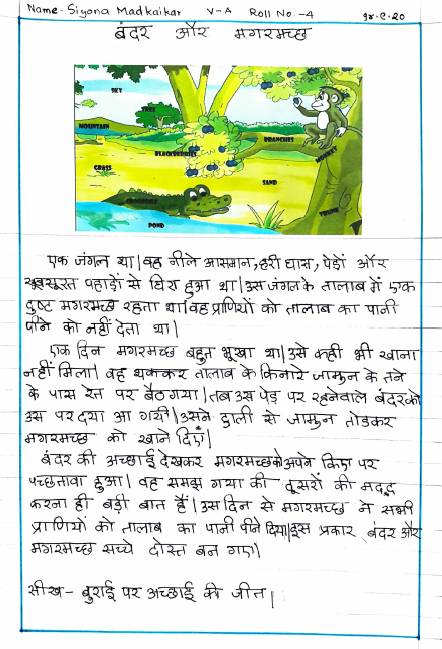 Name- Siyona Madkaikar V-A Roll No.-4 १४.८.२०
बंदर और मगरमच्छ
SKY
TREE
MOUNTAIN
BRANCHES
BLACKBERRIES
MONKEY
GRASS
SAND
CROCODILE
TRUNK
POND
एक जंगल था| वह नीले आसमान, हरी घास, पेड़ों और
खुबसूरत पहाड़ों से घिरा हुआ था| उस जंगल के तालाब में एक
दुष्ट मगरमच्छ रहता था| वह प्राणियों को तालाब का पानी
पीने को नहीं देता था|
एक दिन मगरमच्छ बहुत भूखा था| उसे कही भी खाना
नहीं मिला| वह थककर तालाब के किनारे जामुन के तने
के पास रेत पर बैठ गया| तब उस पेड़ पर रहनेवाले बंदर को
उस पर दया आ गयी| उसने डाली से जामुन तोडकर
मगरमच्छ को खाने दिए|
बंदर की अच्छाई देखकर मगरमच्छ को अपने किए पर
पच्छतावा हुआ| वह समझ गया की दूसरों की मदद
करना ही बड़ी बात हैं| उस दिन से मगरमच्छ ने सभी
प्राणियों को तालाब का पानी पीने दिया| इस प्रकार बंदर और
मगरमच्छ सच्चे दोस्त बन गए|
सीख- बुराई पर अच्छाई की जीत|